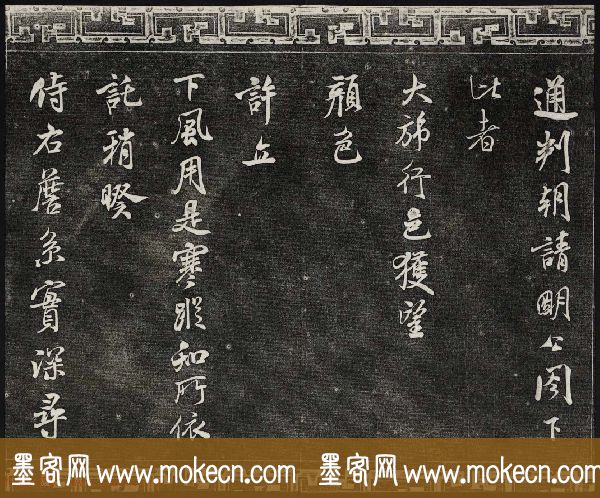 通判朝請明公閤下
比者
大旆行邑獲望
顏色
許立
下風用是寒蹤知所依
託稍暌
侍右詹系實深尋
墨客网 www.mokecn.com 墨客网 www.mokecn.com